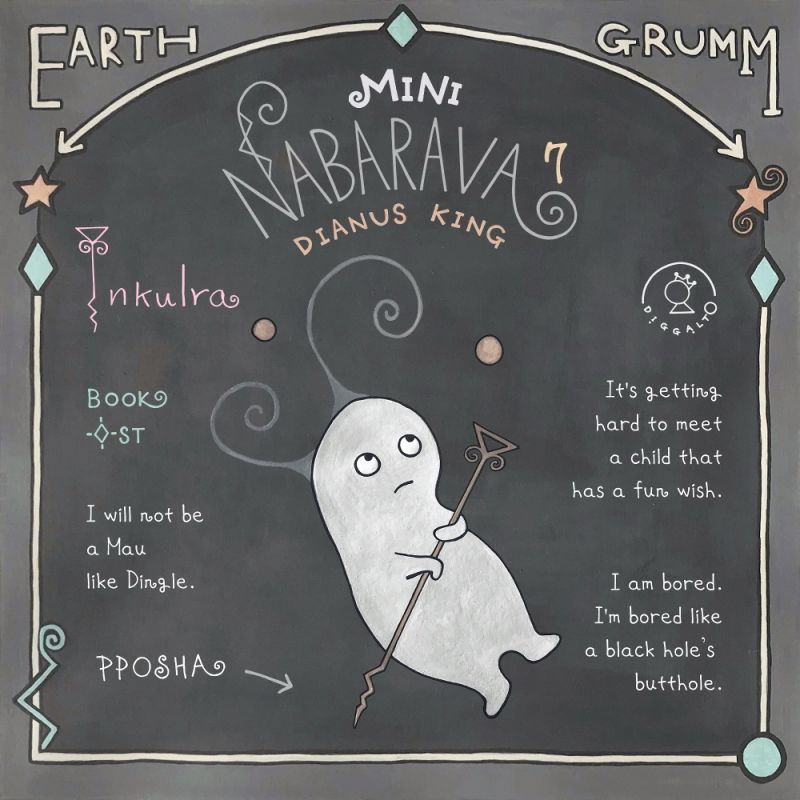 EARTH
GRUMM
MINI
NABARAVA 7
DIANUS KING
Inkulra
DIGGALTO
BOOK
-◇-ST
I will not be
a Mau
like Dingle.
PPOSHA
It's getting
hard to meet
a child that
has a fun wish.
I am bored.
I'm bored like
a black hole's
butthole.